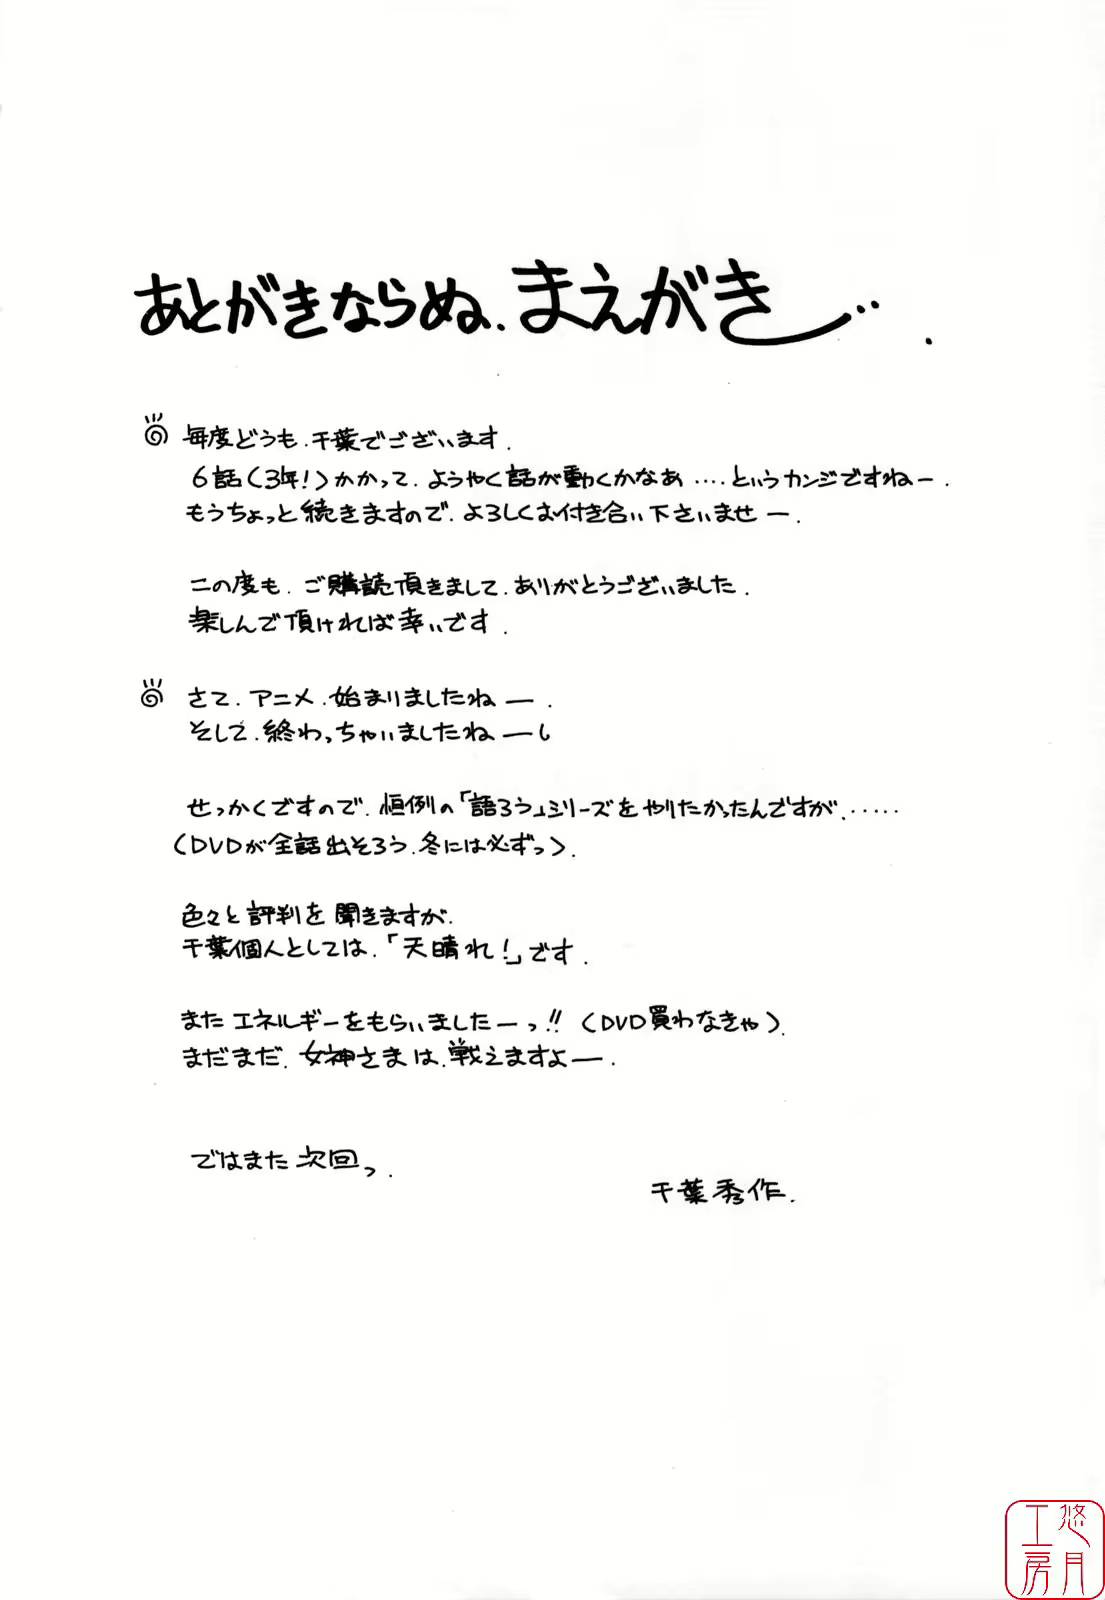 あとがきならぬ、まえがき‥.
毎度どうも.千葉でございます.
6話(3年!)かかって、ようやく話が動くかなあ....というカンジですねー.
もうちょっと続きますので、よろしくお付き合い下さいませー.
この度も、ご購読頂きまして、ありがとうございました.
楽しんで頂ければ幸いです.
さて、アニメ、始まりましたねー.
そして、終わっちゃいましたねー
せっかくですので、恒例の「語ろう」シリーズをやりたかったんですが、.....
(DVDが全話出そろう、冬には必ずっ).
色々と評判を聞きますが、
千葉個人としては、「天晴れ!」です.
またエネルギーをもらいましたーっ!!(DVD買わなきゃ).
まだまだ、女神さまは、戦えますよー.
ではまた次回っ.
千葉秀作.
悠月
工房